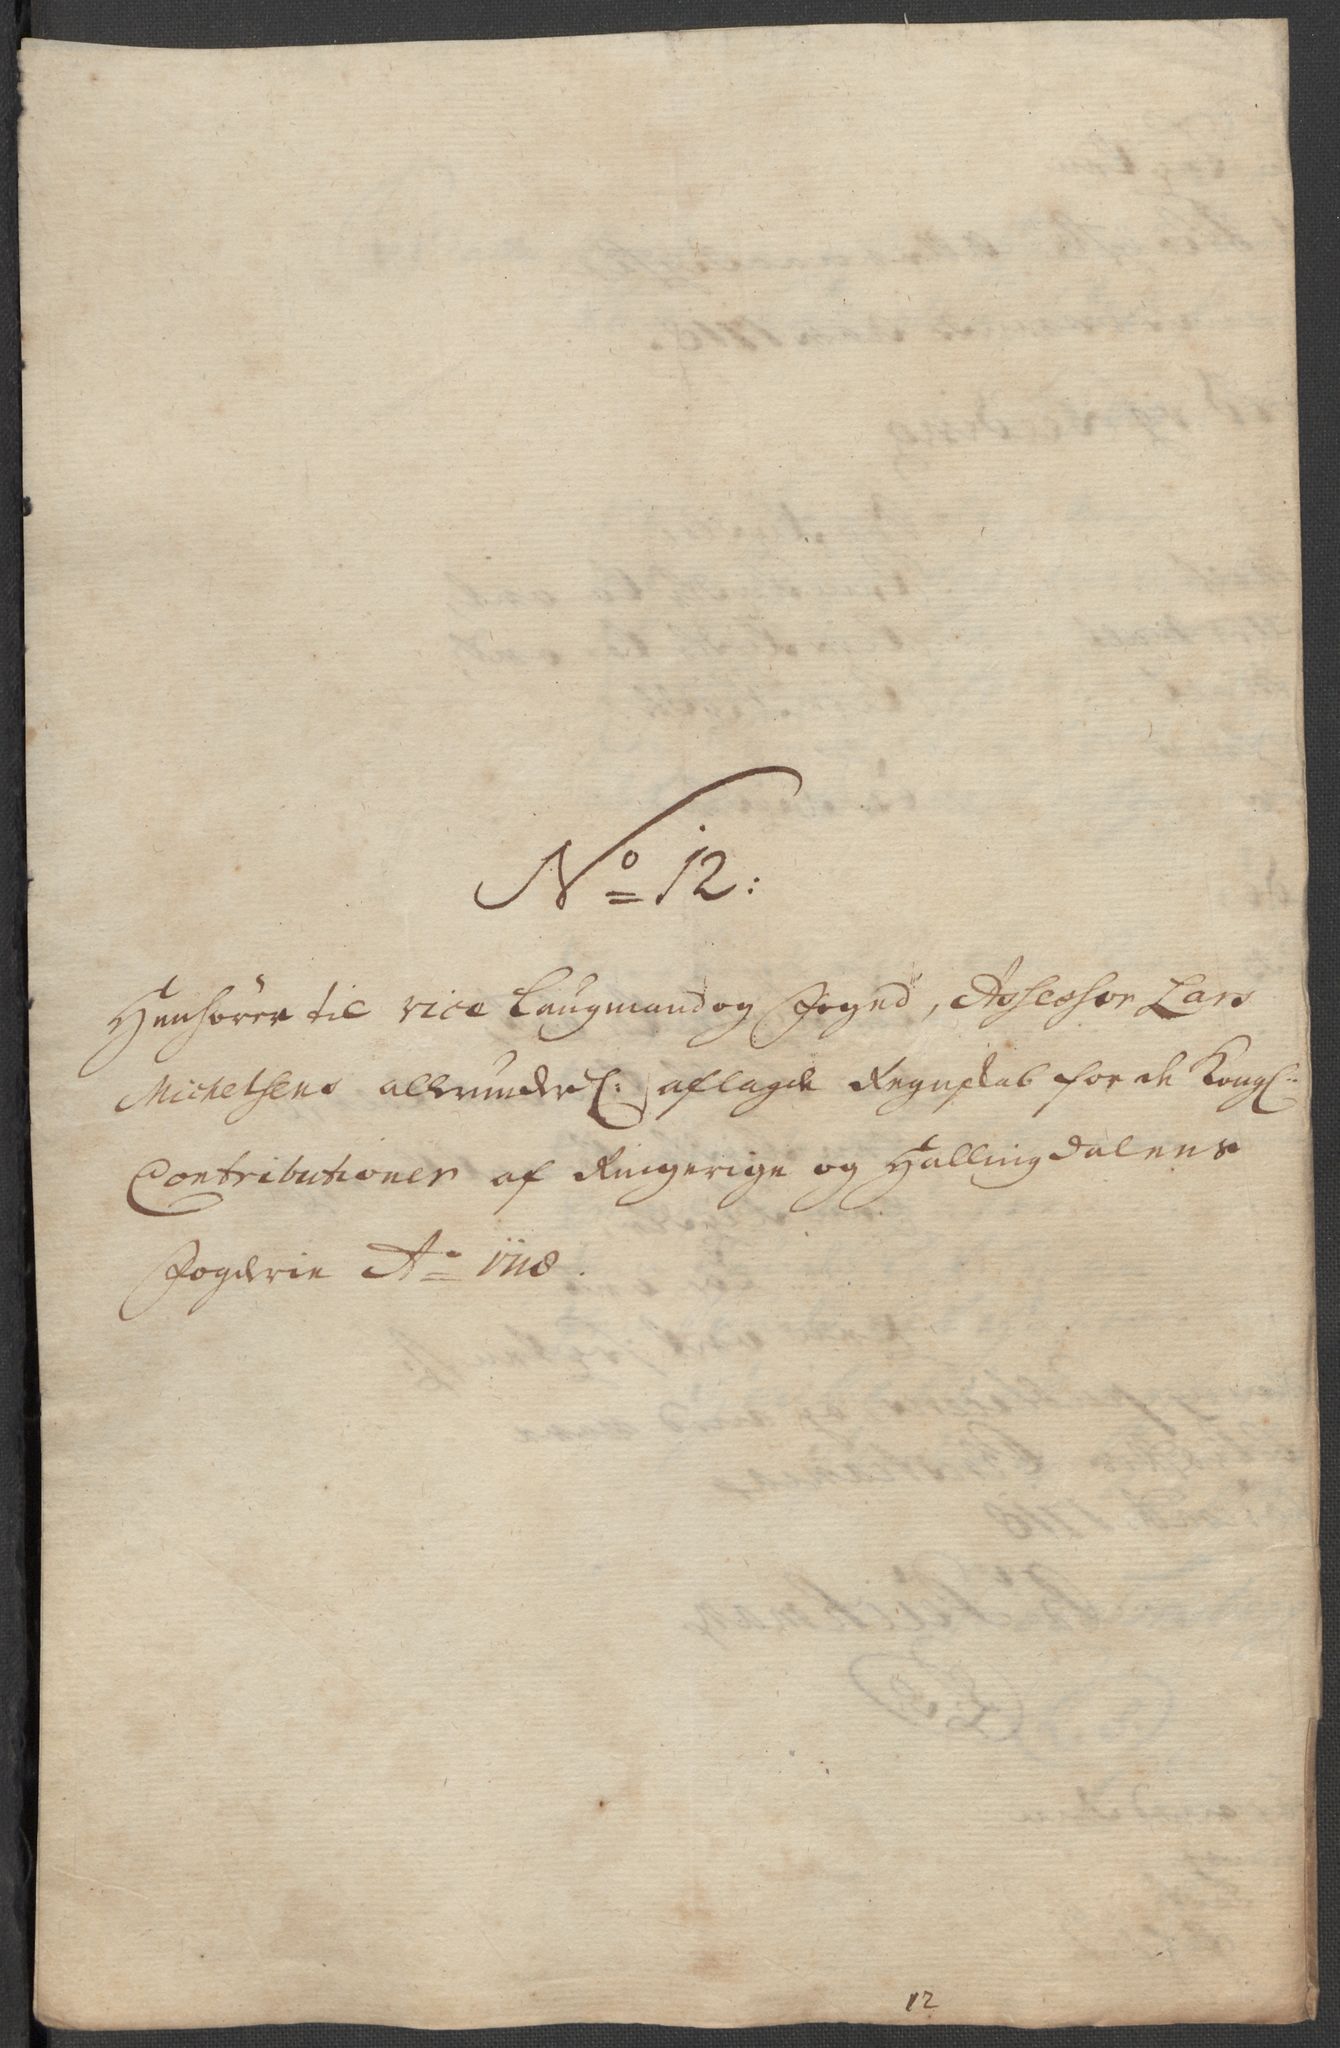 No 12:
Henhörer til vice Laugmand og Foged, Assessor Lars
Michelsens allerunderd: aflagde Regnskab for de Kongl:
Contributioner af Ringerige og Hallingdalens
Fogderie Ao 1718.
12